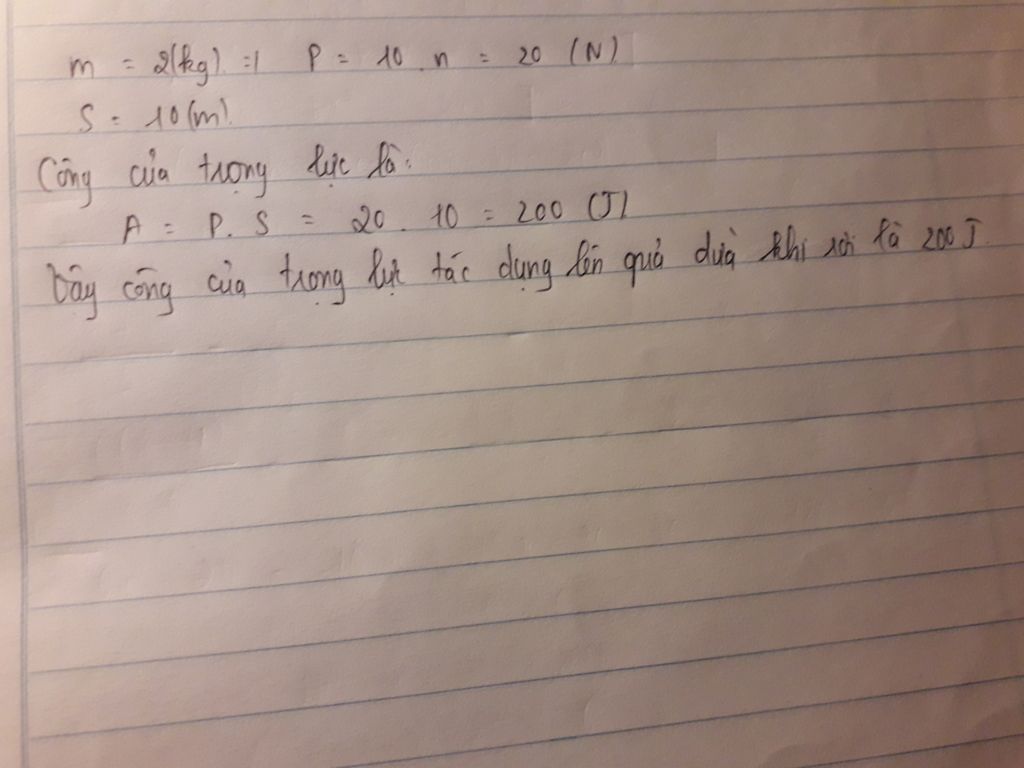 m = 2(kg). => P = 10 . m = 20 (N)
S = 10(m).
Công của trọng lực là:
A = P. S = 20 . 10 = 200 (J)
Vậy công của trọng lực tác dụng lên quả dừa khi rơi là 200 J.